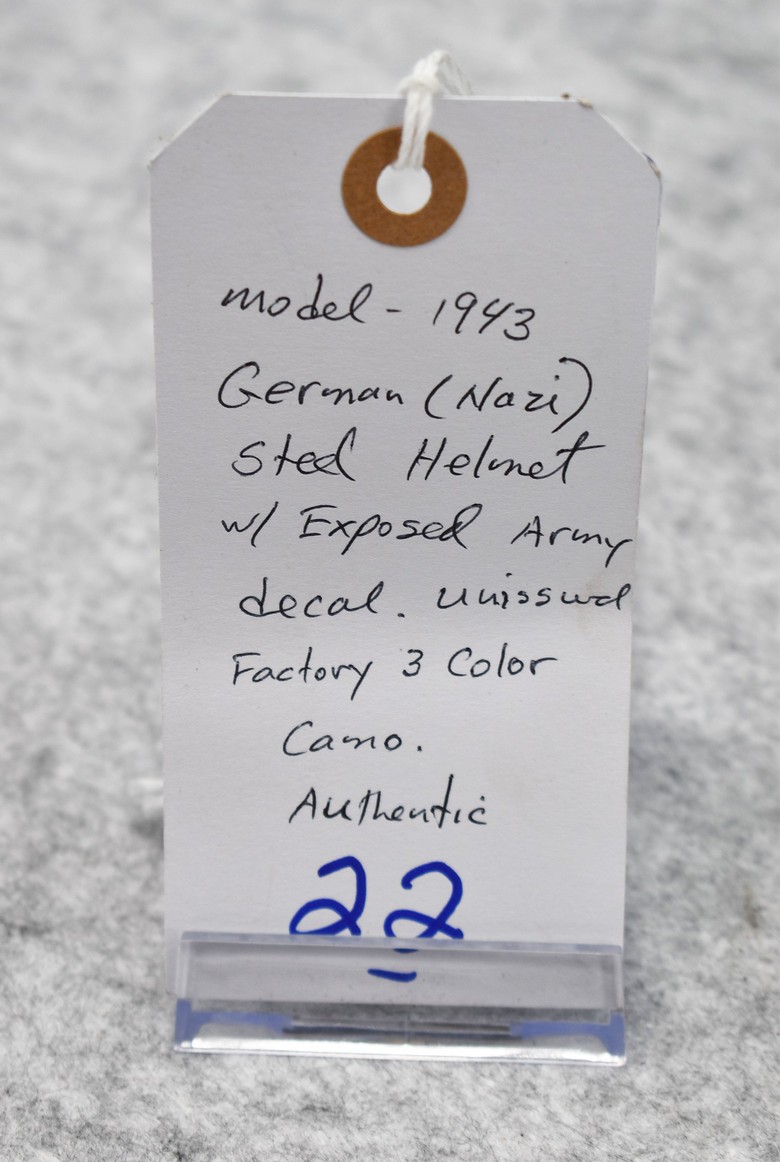 model - 1943
German (Nazi)
Steel Helmet
w/ Exposed Army
decal. unissued
Factory 3 Color
Camo.
Authentic
22